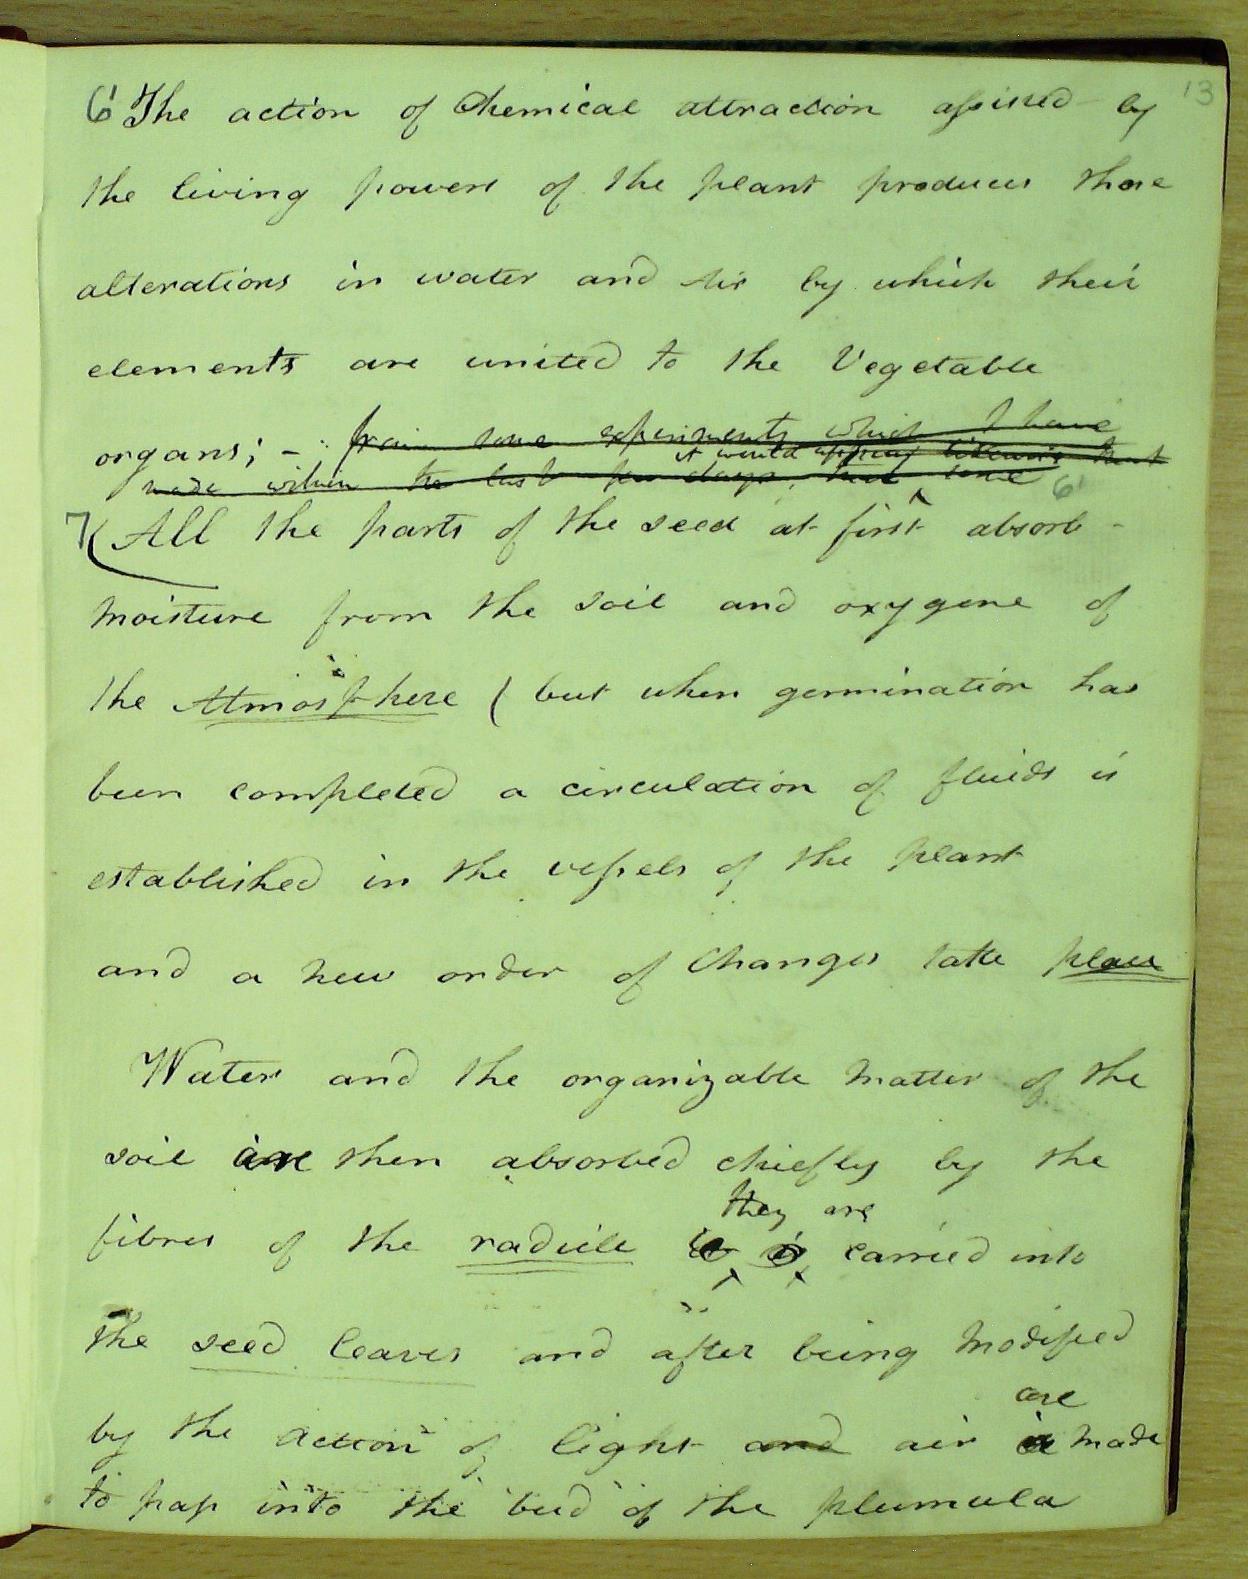 13
6 The action of Chemical attraction assisted by
the living powers of the plant produces those
alterations in water and Air by which their
elements are united to the Vegetable
organs; - from some experiments which I have
it would appear likewise that
made within the last few days, that some 6
7 ( All the parts of the seed at first ^ absorb -
moisture from the soil and oxygene of
the Atmosphere ( but when germination has
been completed a circulation of fluids is
established in the vessels of the plant
and a new order of Changes take place
Water and the organizable matter of the
soil are then absorbed chiefly by the
they are
fibres of the radicle it is carried into
the seed leaves and after being modified
are
by the action of light and air is made
to pass into the bud of the plumula